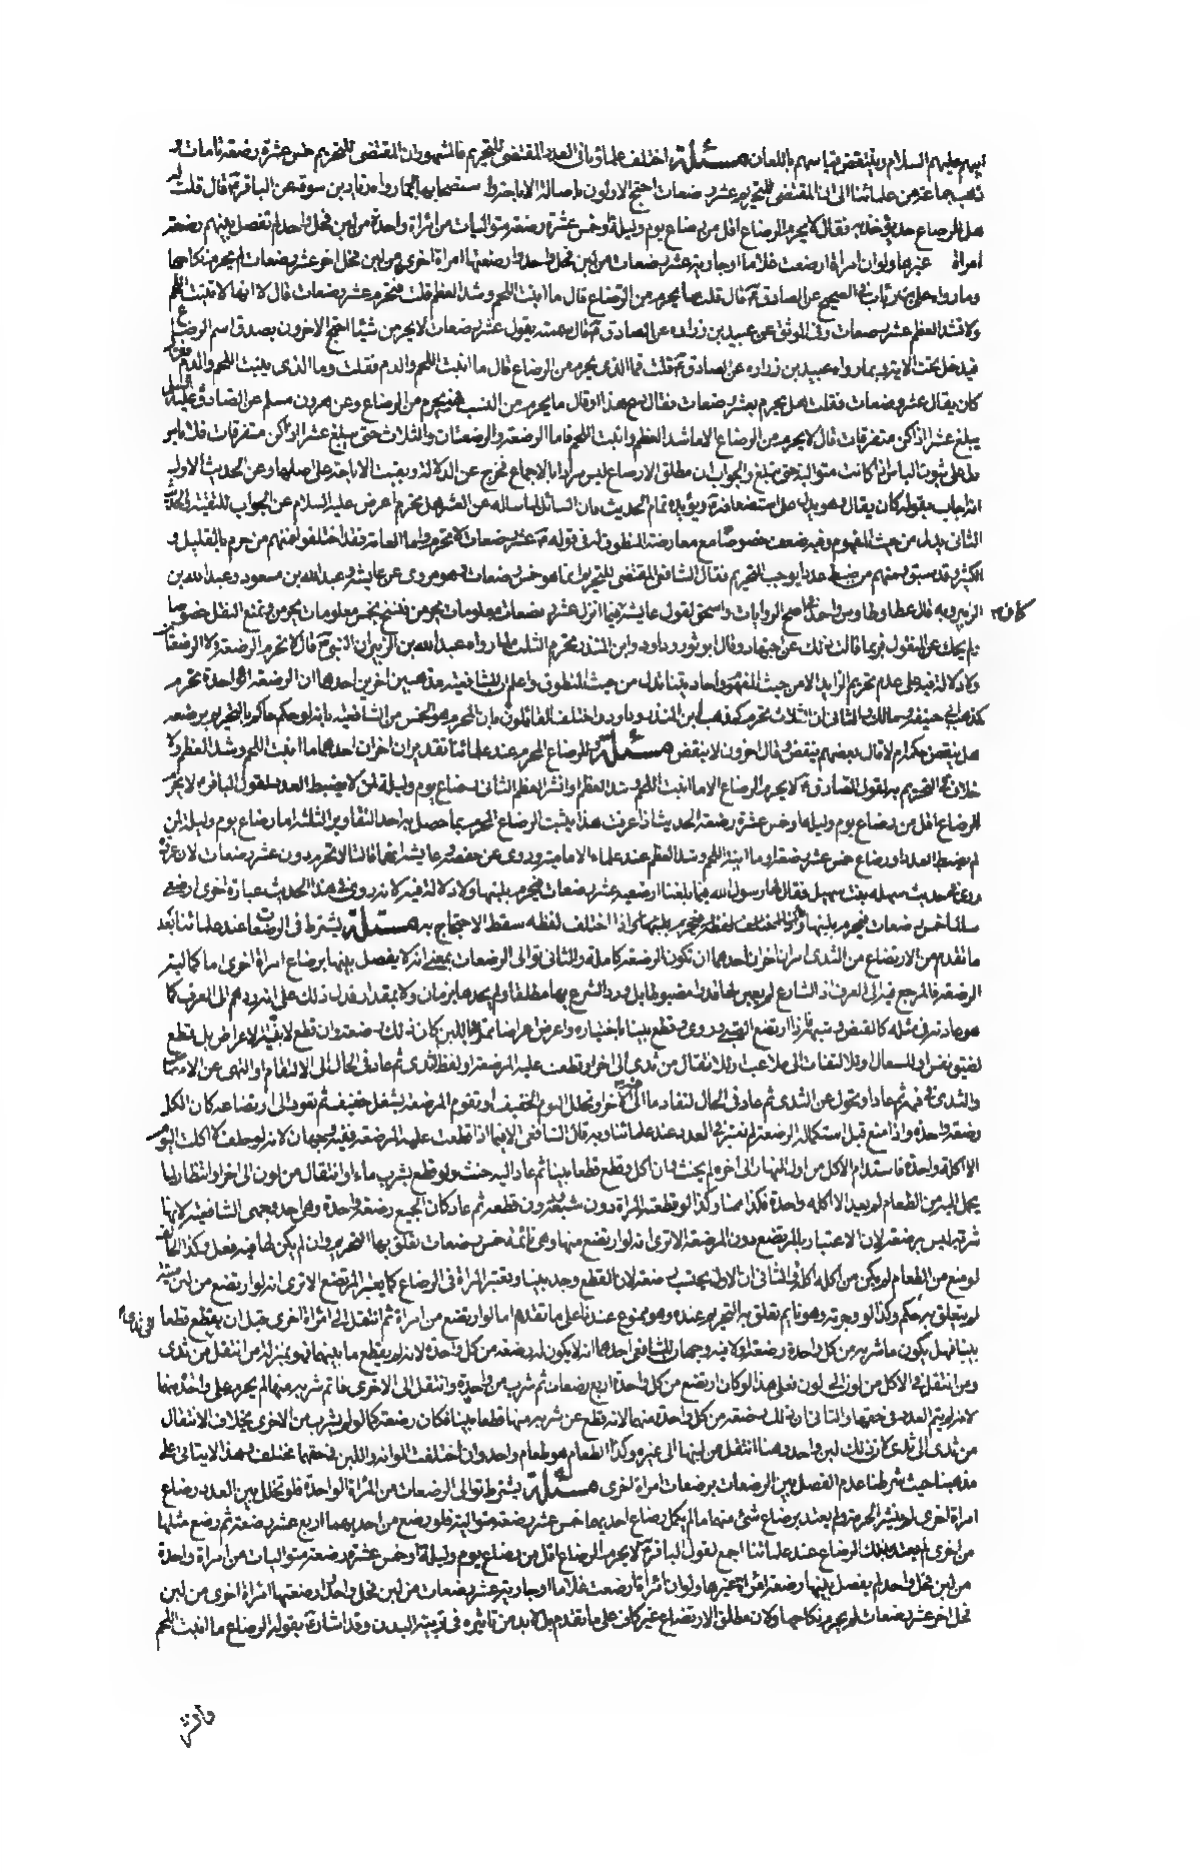 ابيهم عليهم السلام وينتقض قياسهم باللعان مسئلة اختلف علماؤنا في العدد المقتضي للتحريم فالمشهور ان المقتضي للتحريم خمس عشرة رضعة تامات و
ذهب جماعة من علمائنا الى ان المقتضي للتحريم عشر رضعات احتج الاولون باصالة الاباحة وا بما رواه زياد بن سوقة عن الباقر قال قلت له
هل للرضاع حد يؤخذ به فقال لا يحرم الرضاع اقل من رضاع يوم وليلة او خمس عشرة رضعة متواليات من امراة واحدة من لبن فحل واحد لم تفصل بينهم رضعة
امراة غيرها ولو ان امراة ارضعت غلاما او جارية عشر رضعات من لبن فحل واحد وارضعتها امراة اخرى من لبن فحل اخر عشر رضعات لم يحرم نكاحهما
وما رواه علي بن رئاب في الصحيح عن الصادق قال قلت ما يحرم من الرضاع قال ما انبت اللحم وشد العظم قلت فتحرم عشر رضعات قال لا انها لا تنبت اللحم
ولا تشد العظم عشر رضعات وفي الموثق عن عبيد بن زرارة عن الصادق قال سمعته يقول عشر رضعات لا يحرمن شيئا احتج الاخرون بصدق اسم الرضاع
فيدخل تحت الاية وبما رواه عبيد بن زرارة عن الصادق قلت فما الذي يحرم من الرضاع قال ما انبت اللحم والدم فقلت وما الذي ينبت اللحم والدم فقال
كان يقال عشر رضعات فقلت هل يحرم بعشر رضعات فقال دع هذا وقال ما يحرم من النسب فهو يحرم من الرضاع وعن هرون بن مسلم عن الصادق عليه السلم
يبلغ عشرا اذا كن متفرقات قال لا يحرم من الرضاع الا ما شد العظم وانبت اللحم فاما الرضعة والرضعتان والثلاث حتى يبلغ عشرا اذا كن متفرقات فلا باس
دل على ثبوت الباس اذا كانت متوالية حتى تبلغ والجواب ان مطلق الارضاع ليس مرادا بالاجماع فخرج عن الدلالة وبقيت الاباحة على اصلها وعن الحديث الاول
انه اجاب بقوله كان يقال وهو يدل على استضعافه ويؤيده تمام الحديث فان السائل لما ساله عن العشر هل تحرم اعرض عليه السلام عن الجواب للتقية والحديث
الثاني يدل من حيث المفهوم وفيه ضعف خصوصا مع معارضة المنطوق له في قوله عشر رضعات لا تحرم واما العامة فقد اختلفوا فمنهم من حرم بالقليل و
الكثير وقد سبق ومنهم من ضبط عددا يوجب التحريم فقال الشافعي المقتضي للتحريم انما هو خمس رضعات وهو مروي عن عايشة وعبد الله بن مسعود وعبد الله بن
الزبير وبه قال عطا وطاوس واحمد في اصح الروايات واسحق لقول عايشة فيما انزل عشر رضعات معلومات يحرمن فنسخ بخمس معلومات يحرمن ونمنع النقل خصوصا
كان
لم يحك عن المنقول فربما قالت ذلك عن اجتهاد وقال ابو ثور وداود وابن المنذر تحرم الثلث لما رواه عبد الله بن الزبير ان النبي قال لا تحرم الرضعة ولا الرضعتان
ولا دلالة فيه على عدم تحريم الزايد الا من حيث المفهوم واحاديثنا تدل من حيث المنطوق واعلم ان للشافعية مذهبين اخرين احدهما ان الرضعة الواحدة تحرم
كمذهب ابي حنيفة ومالك والثاني ان الثلاث تحرم كمذهب ابن المنذر وداود واختلف القائلون بان المحرم هو الخمس من الشافعية بانه لو حكم حاكم بالتحريم برضعة
هل ينقض حكمه ام لا قال بعضهم ينقض وقال اخرون لا ينقض مسئلة وللرضاع المحرم عند علمائنا تقديران اخران احدهما ما انبت اللحم وشد العظم ولا
خلاف في التحريم به لقول الصادق لا يحرم من الرضاع الا ما انبت اللحم وشد العظم او انشر العظم الثاني رضاع يوم وليلة لمن لا يضبط العدد لقول الباقر لا يحرم
الرضاع اقل من رضاع يوم وليلة او خمس عشرة رضعة الحديث اذا عرفت هذا يثبت الرضاع المحرم بما حصل به احد التقادير الثلثة اما رضاع يوم وليلة لمن
لم يضبط العدد او رضاع خمس عشر رضعة او ما انبت اللحم وشد العظم عند علماء الامامية وروي عن حفصة وعايشة انهما قالتا لا تحرم دون عشر رضعات لان عروة
روى في حديث سهلة بنت سهيل فقال لها رسول الله فيما بلغنا ارضعيه عشر رضعات فيحرم بلبنها ولا دلالة فيه لانه روي في هذا الحديث عبارة اخرى ارضعي
سالما خمس رضعات فيحرم بلبنها واذا اختلف لفظه سقط الاحتجاج به مسئلة يشترط في الرضعات عند علمائنا بعد
ما تقدم من الارتضاع من الثدي امران اخران احدهما ان تكون الرضعة كاملة والثاني توالي الرضعات بمعنى انه لا يفصل بينهما برضاع امراة اخرى اما كمالية
الرضعة فالمرجع فيه الى العرف اذ الشارع لم يعين لها قدرا مضبوطا بل ورد الشرع بها مطلقا ولم يحدها بزمان ولا بمقدار فدل ذلك على انه ردهم الى العرف كما
هو عادته في مثله كالقبض وشبهه فاذا ارتضع الصبي وروي وقطع قطعا بينا باختياره واعرض اعراضا ممتلئ باللبن كان ذلك رضعة وان قطع لا بنية الاعراض بل قطع
لضيق نفس او للسعال او للالتفات الى ملاعب او للانتقال من ثدي الى اخر او قطعت عليه المرضعة او لفظ الثدي ثم عاد في الحال الى الالتقام او التهى عن الامتصاص
والثدي في فمه ثم عاد او تحول عن الثدي ثم عاد في الحال لنفاد ما في الاخر او تخلل النوم الخفيف او تقوم المرضعة لشغل خفيف ثم تعود الى ارتضاعه كان الكل
رضعة واحدة واذا منع قبل استكماله الرضعة لم تعتبر في العدد عند علمائنا وبه قال الشافعي الا فيما اذا قطعت عليه المرضعة ففيه وجهان لانه لو حلف لا اكلت اليوم
الا اكلة واحدة فاستدام الاكل من اول النهار الى اخره لم يحنث وان اكل وقطع قطعا بينا ثم عاد اليه حنث ولو قطع بشرب ماء او انتقال من لون الى اخر او انتظار لما
يحمل اليه من الطعام لم يعد الا اكلة واحدة فكذا هنا وكذا لو قطعته المراة دون شبعه دون قطعه ثم عاد كان الجميع رضعة واحدة وهي احد وجهي الشافعية لانها
شربة ليس برضعة لان الاعتبار بالمرتضع دون المرضعة الا ترى انه لو ارتضع منها وهي نائمة خمس رضعات تعلق بها التحريم وان لم يكن لها فيه فعل وكذا الحالف
لو منع من الطعام لم يكن من اكله اكلة والثاني ان الاولى يحتسب رضعة لان القطع وجد بينا ويعتبر المراة في الرضاع كما يعتبر المرتضع الا ترى انه لو ارتضع من لبن ميتة
لم يتعلق به حكم وكذا لو وجرته وهو نايم تعلق به التحريم عنده وهو ممنوع عندنا على ما تقدم اما لو ارتضع من امراة ثم انتقل الى امراة اخرى قبل ان يقطع قطعا
بينا فهل يكون ما شربه من كل واحدة رضعة اولا فيه وجهان للشافعي احدهما انه لا يكون له رضعة من كل واحدة لانه لم يقطع ما بينهما فهو بمنزلة من انتقل من ثدي
ومن انتقل في الاكل من لون الى لون فعلى هذا لو كان ارتضع من كل واحدة اربع رضعات ثم شرب من واحدة وانتقل الى الاخرى فاتم شربه منها لم يحرم على واحدة منهما
لانه لم يتم العدد في حقهما والثاني ان ذلك رضعة من كل واحدة منهما لانه قطع عن شربه منها قطعا بينا فكان رضعة كما لو لم يشرب من الاخرى بخلاف الانتقال
من ثدي الى ثدي كان ذلك لبن واحد وهنا انتقل من لبنها الى غيره وكذا الطعام هو طعام واحد وان اختلفت الوانه واللبن في حقهما مختلف وهذا لا يتاتى على
مذهبنا حيث شرطنا عدم الفصل بين الرضعات برضعات امراة اخرى مسئلة يشترط توالي الرضعات من المراة الواحدة فلو تخلل بين العدد رضاع
امراة اخرى لم ينشر الحرمة ولم يعتد برضاع شئ منهما ما لم يكمل رضاع احديهما خمس عشر رضعة متوالية فلو رضع من احديهما اربع عشر رضعة ثم رضع مثلها
من اخرى لم يعتد بذلك الرضاع عند علمائنا اجمع لقول الباقر لا يحرم الرضاع اقل من رضاع يوم وليلة او خمس عشرة رضعة متواليات من امراة واحدة
من لبن فحل واحد لم يفصل بينها رضعة امراة غيرها ولو ان امراة ارضعت غلاما او جارية عشر رضعات من لبن فحل واحد وارضعتها امراة اخرى من لبن
فحل اخر عشر رضعات لم يحرم نكاحهما ولان مطلق الارتضاع غير كاف على ما تقدم بل لا بد من تاثيره في تربية البدن وقد اشار بقوله الرضاع ما انبت اللحم